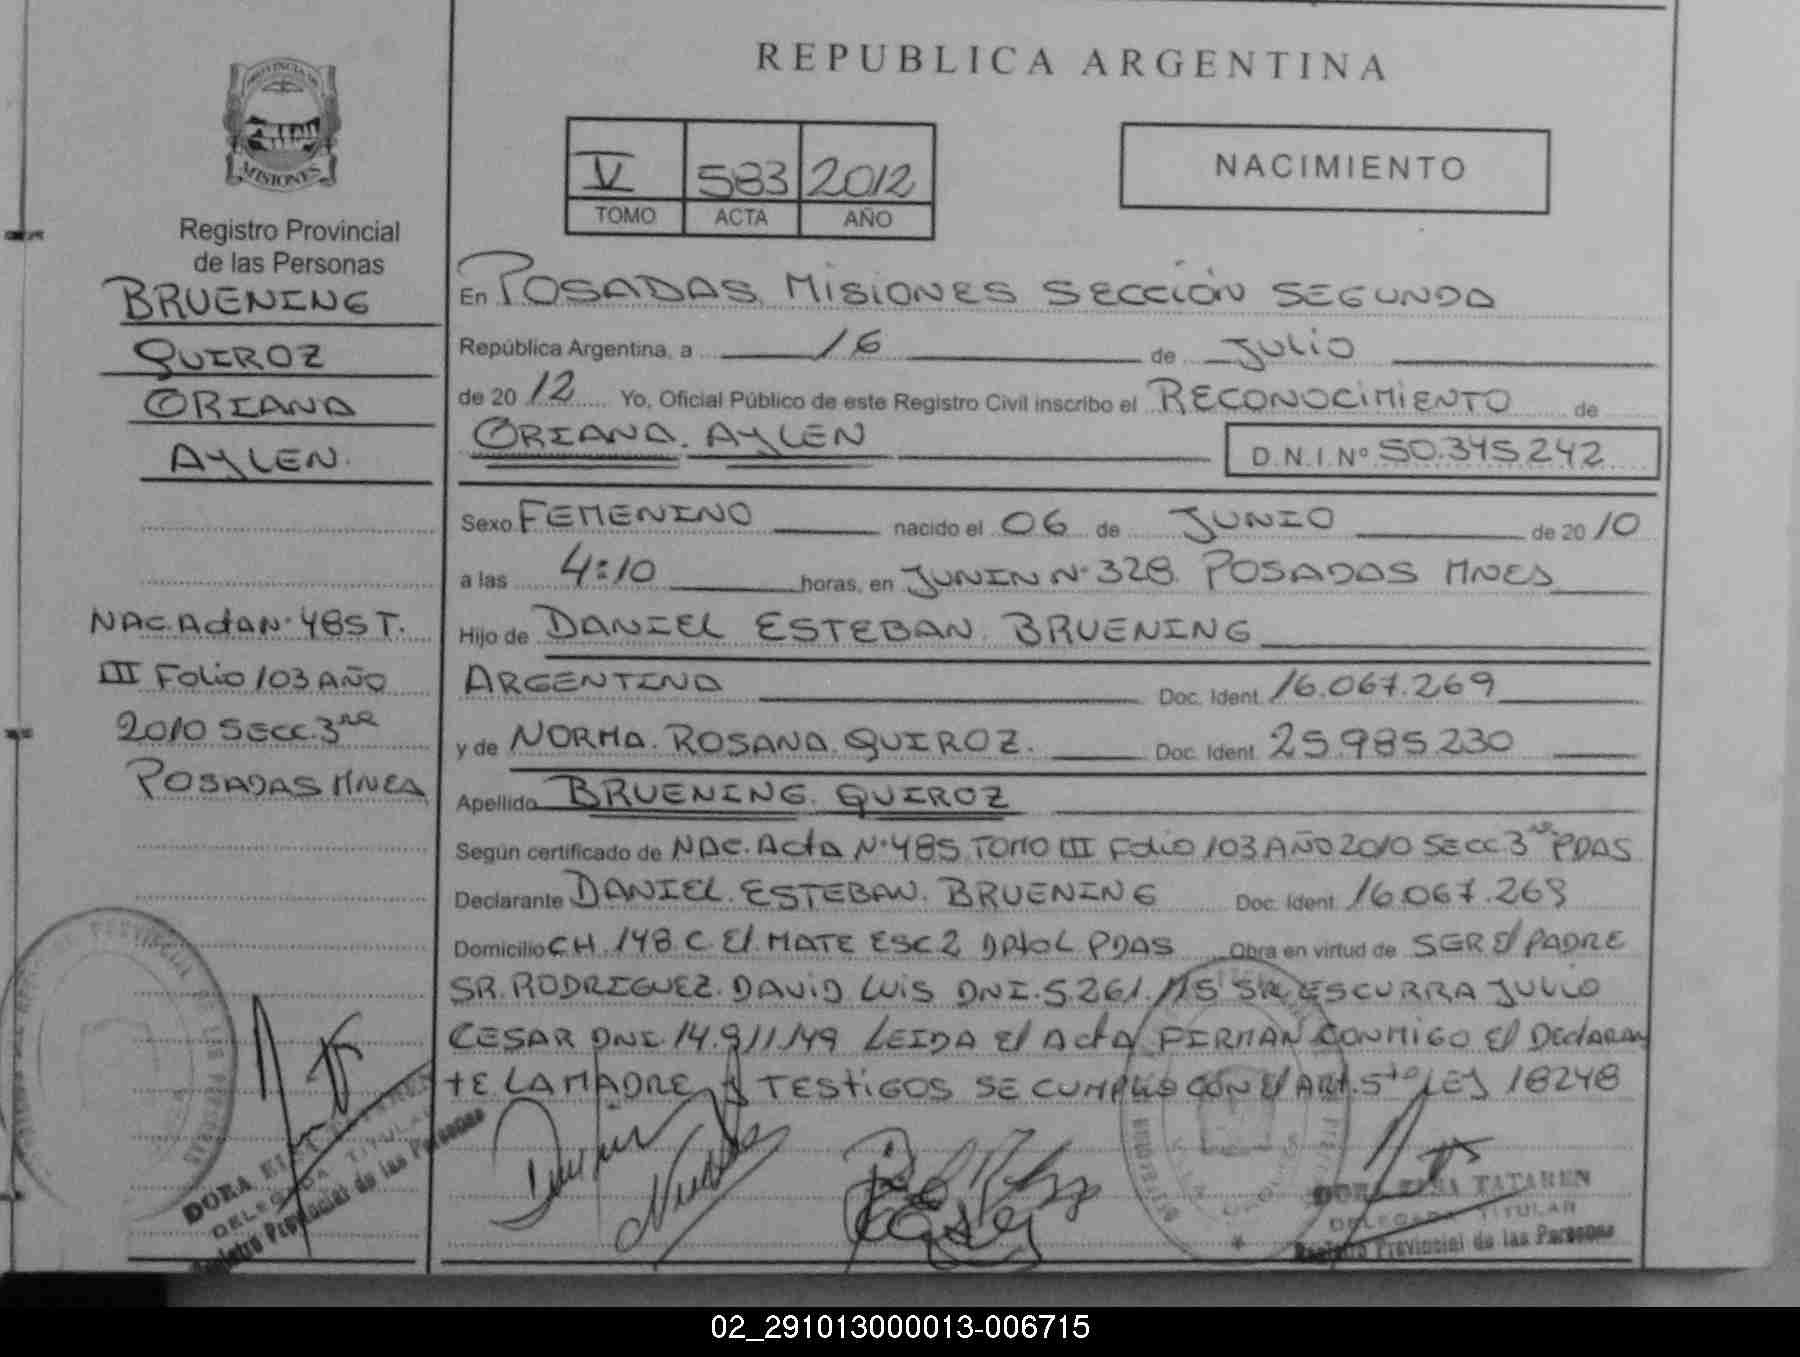 REPUBLICA ARGENTINA
PROVINCIA DE
MISIONES
Registro Provincial
de las Personas
BRUENING
QUIROZ
ORIANA
AYLEN.
NAC. Acta N· 485 T.
III Folio 103 AÑO
2010 SECC. 3ra
POSADAS MNES
V 583 2012
TOMO ACTA AÑO
NACIMIENTO
En POSADAS MISIONES SECCIÓN SEGUNDA
República Argentina, a 16 de JULIO
de 2012 Yo, Oficial Público de este Registro Civil inscribo el RECONOCIMIENTO de
ORIANA. AYLEN D.N.I. Nº 50.345.242
Sexo FEMENINO nacido el 06 de JUNIO de 2010
a las 4:10 horas, en JUNIN N· 328. POSADAS MNES
Hijo de DANIEL ESTEBAN. BRUENING
ARGENTINO Doc. Ident. 16.067.269
y de NORMA. ROSANA. QUIROZ. Doc. Ident. 25.985.230
Apellido BRUENING. QUIROZ
Según certificado de NAC. Acta N· 485 TOMO III Folio 103 AÑO 2010 SECC 3ra PDAS
Declarante DANIEL. ESTEBAN. BRUENING Doc. Ident. 16.067.269
Domicilio CH. 148 C. El. MATE ESC 2 DPTO L PDAS Obra en virtud de SER El PADRE
SR. RODRIGUEZ. DAVID LUIS DNI. 5261. SR. ESCURRA JULIO
CESAR DNI. 14.911.149 LEIDA El Acta FIRMAN CONMIGO El Declaran
te LA MADRE y TESTIGOS SE CUMPLIO CON El ART. 5to LEY 18248
DORA ELSA TATAREN
DELEGADA TITULAR
Registro Provincial de las Personas
DORA ELSA TATAREN
DELEGADA TITULAR
Registro Provincial de las Personas
02_291013000013-006715